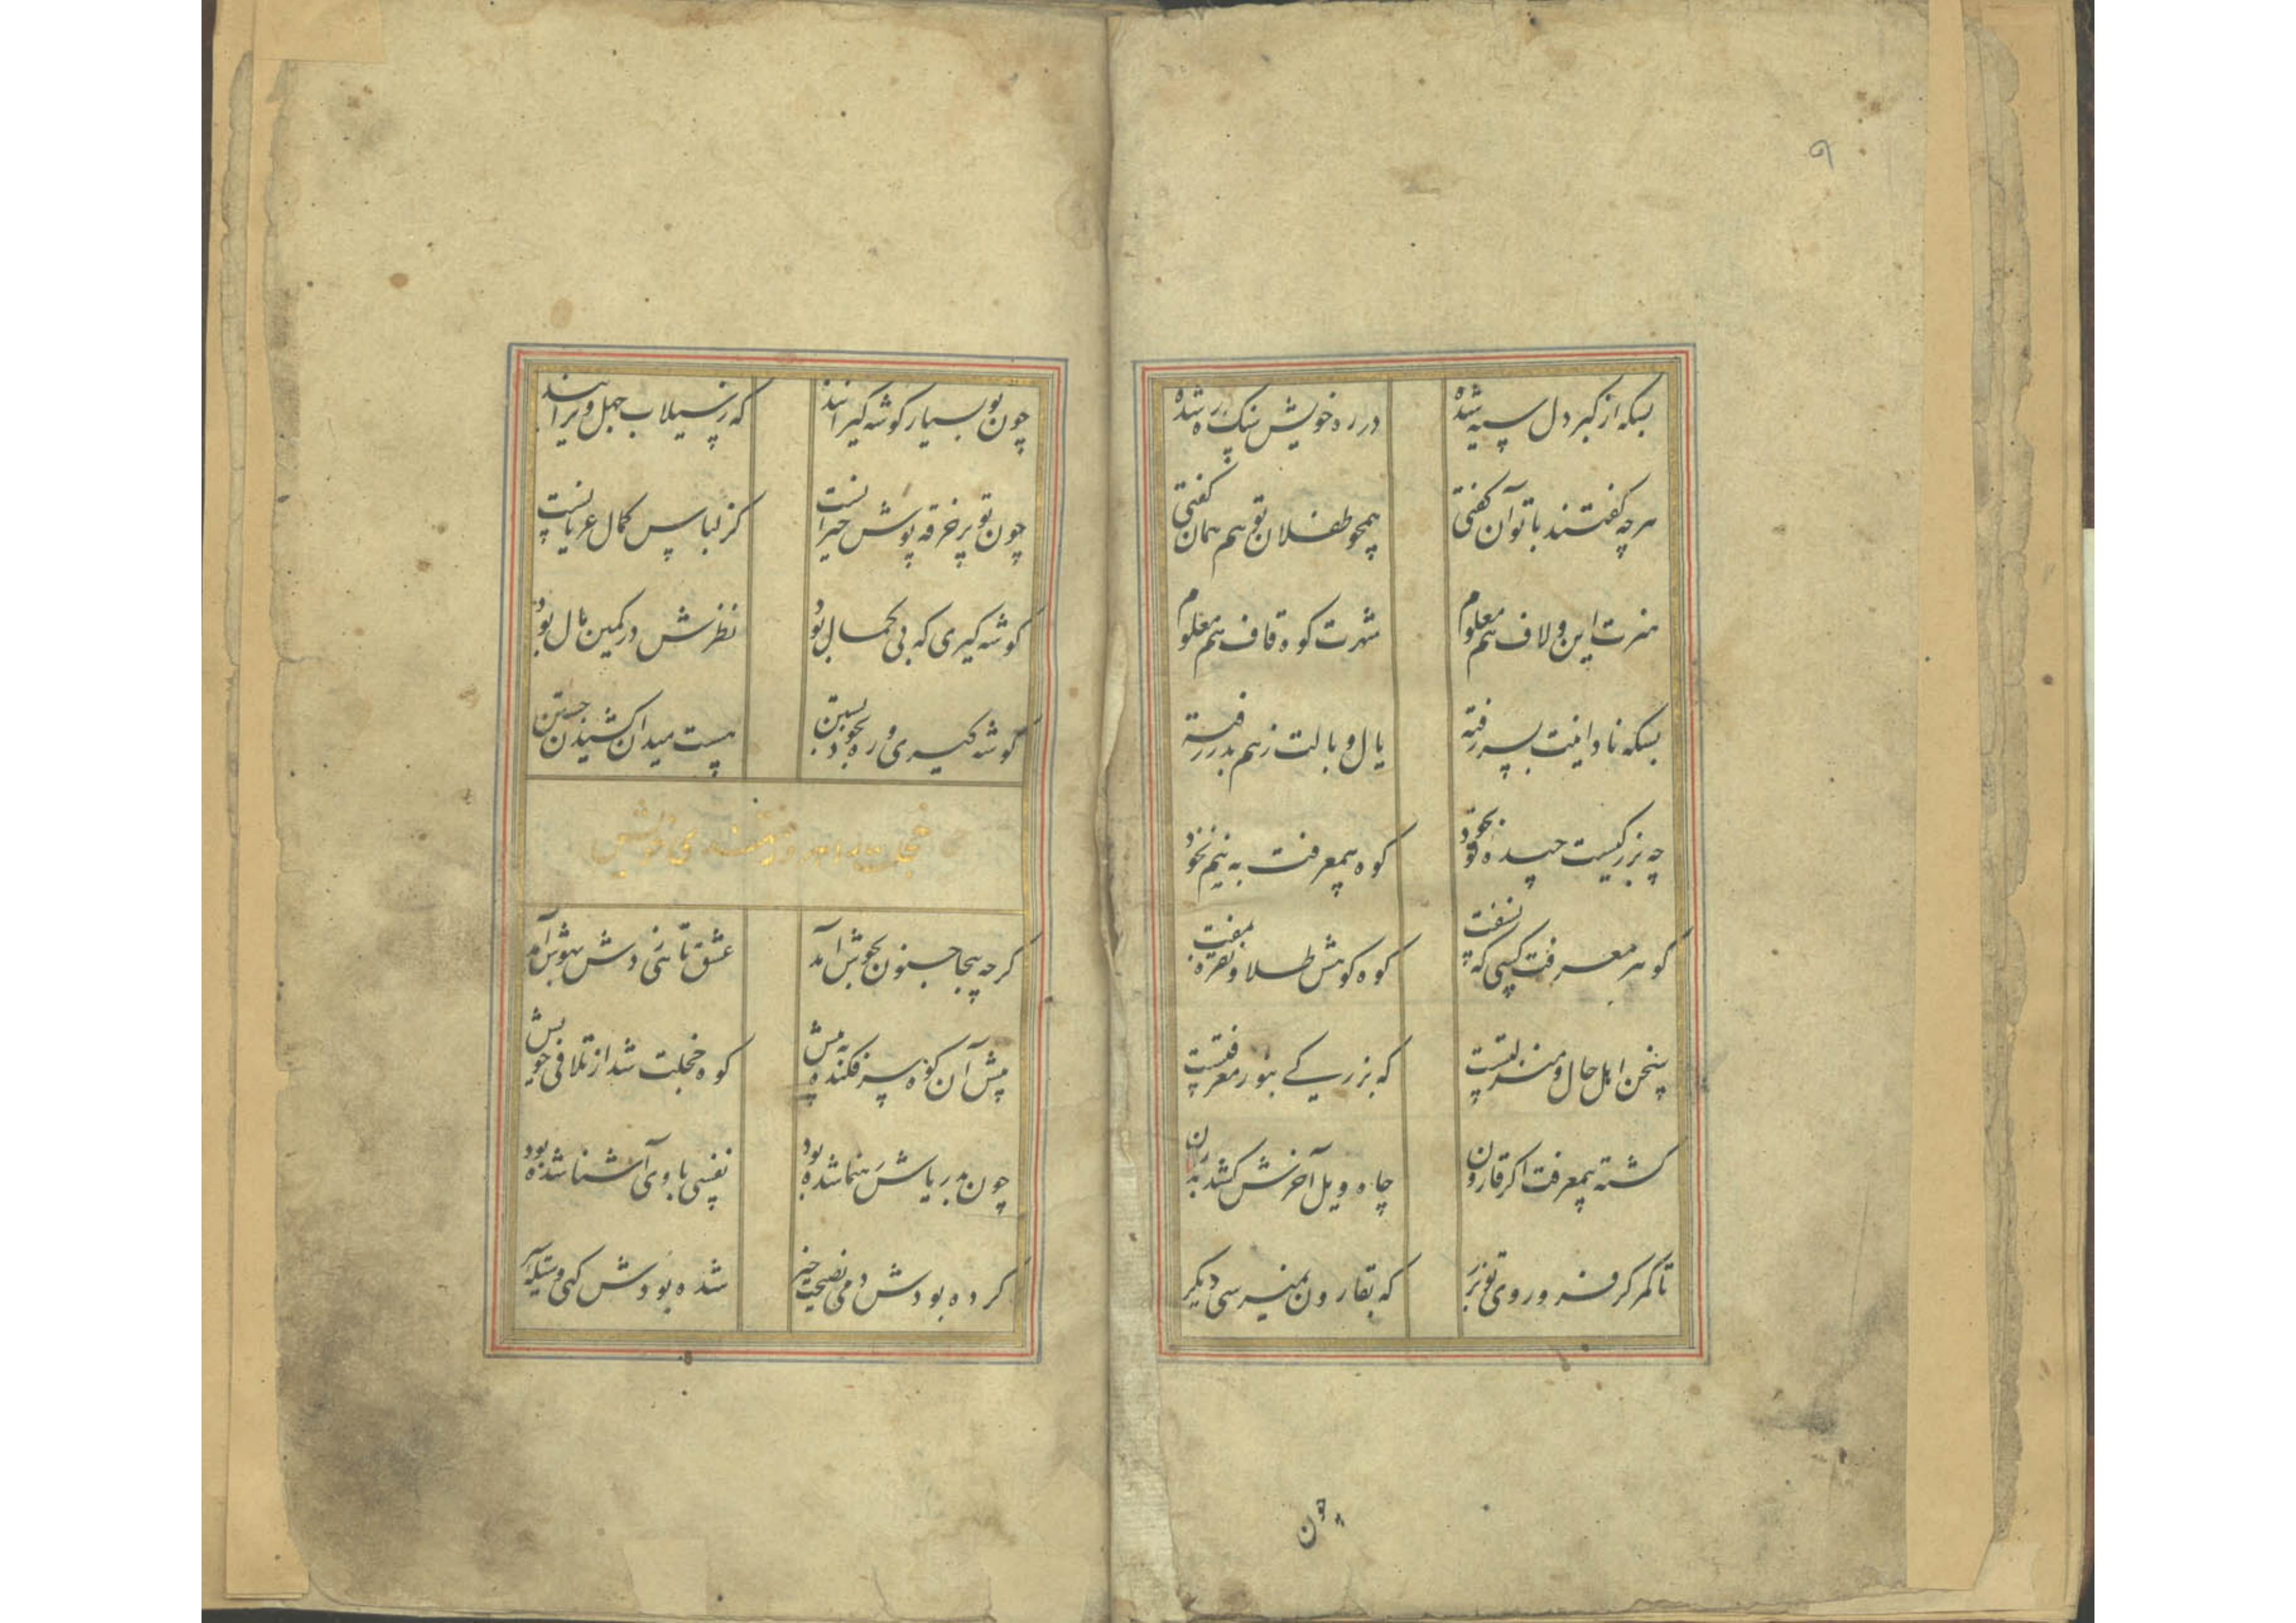 ۹
بسکه از کبر دل سیه شده
در ره خویش سنک ره شده
هرچه گفتند با تو آن گفتی
همچو طفلان تو هم همان گفتی
هنرت این ولاف هم معلوم
شهرت کوه قاف هم معلوم
بسکه نادانیت بسر رفته
یال و بالت ز هم بدر رفته
چه بزرکیست چیده بخود
کوه بیمعرفت به نیم نخود
کوهر معرفت کسی که نسفت
کوه کوهش طلا و نقره بمفت
سخن اهل حال و منزلتست
که بزرکی بنور معرفتست
کشته بیمعرفت اکر قارون
چاه ویل آخرش کشد بدرن
تا کمر کر فرو روی تو بزر
که بقارون نمیرسی دیکر
چون
چون تو بسیار کوشه کیرانند
که ز سیلاب جهل ویرانند
چون تو پر خرقه پوش حیرانست
کز لباس کمال عریانست
کوشه کیری که بی کمال بود
نظرش در کمین مال بود
کوشه کیری و ره بخود بستن
هست میدان کشیدن جستن
کرچه بیجا جنون بجوش آمد
عشق تا نی زدش بهوش آمد
پیش آن کوه سرفکنده به پیش
کوه خجلت شد از تلافی خویش
چون بدریاش رهنما شده بود
نفسی با وی آشنا شده بود
کرده بودش دمی نصیحت خیز
شده بودش کهی وسیله